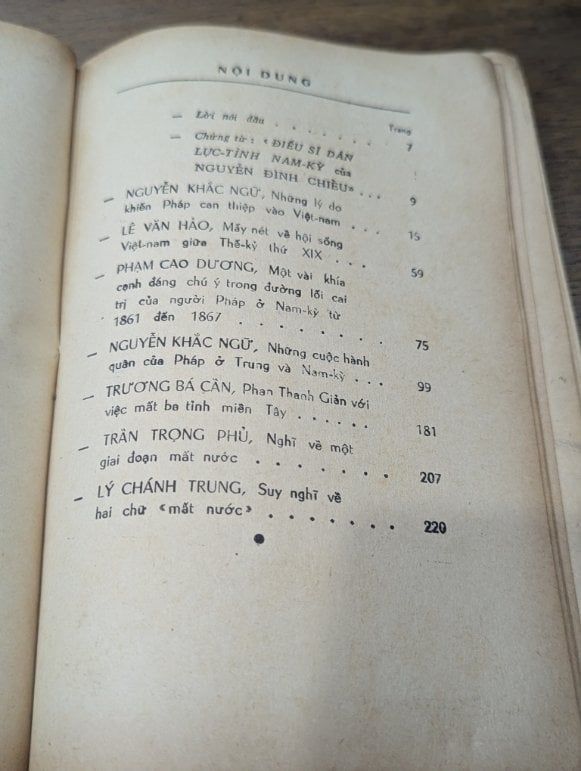 NỘI DUNG
Trang
— Lời nói đầu . . . . . . . 7
— Chứng từ : « ĐIẾU SĨ DÂN
LỤC-TỈNH NAM-KỲ của
NGUYỄN ĐÌNH CHIỂU» . . . 9
— NGUYỄN KHẮC NGỮ, Những lý do
khiến Pháp can thiệp vào Việt-nam . . . 15
— LÊ VĂN HẢO, Mấy nét về hội sống
Việt-nam giữa Thế-kỷ thứ XIX . . . 59
— PHẠM CAO DƯƠNG, Một vài khía
cạnh đáng chú ý trong đường lối cai
trị của người Pháp ở Nam-kỳ từ
1861 đến 1867 . . . . . . . . 75
— NGUYỄN KHẮC NGỮ, Những cuộc hành
quân của Pháp ở Trung và Nam-kỳ . . . 99
— TRƯƠNG BÁ CẦN, Phan Thanh Giản với
việc mất ba tỉnh miền Tây . . . . . . 181
— TRẦN TRỌNG PHỦ, Nghĩ về một
giai đoạn mất nước . . . . . . . . 207
— LÝ CHÁNH TRUNG, Suy nghĩ về
hai chữ «mất nước» . . . . . . . . 220